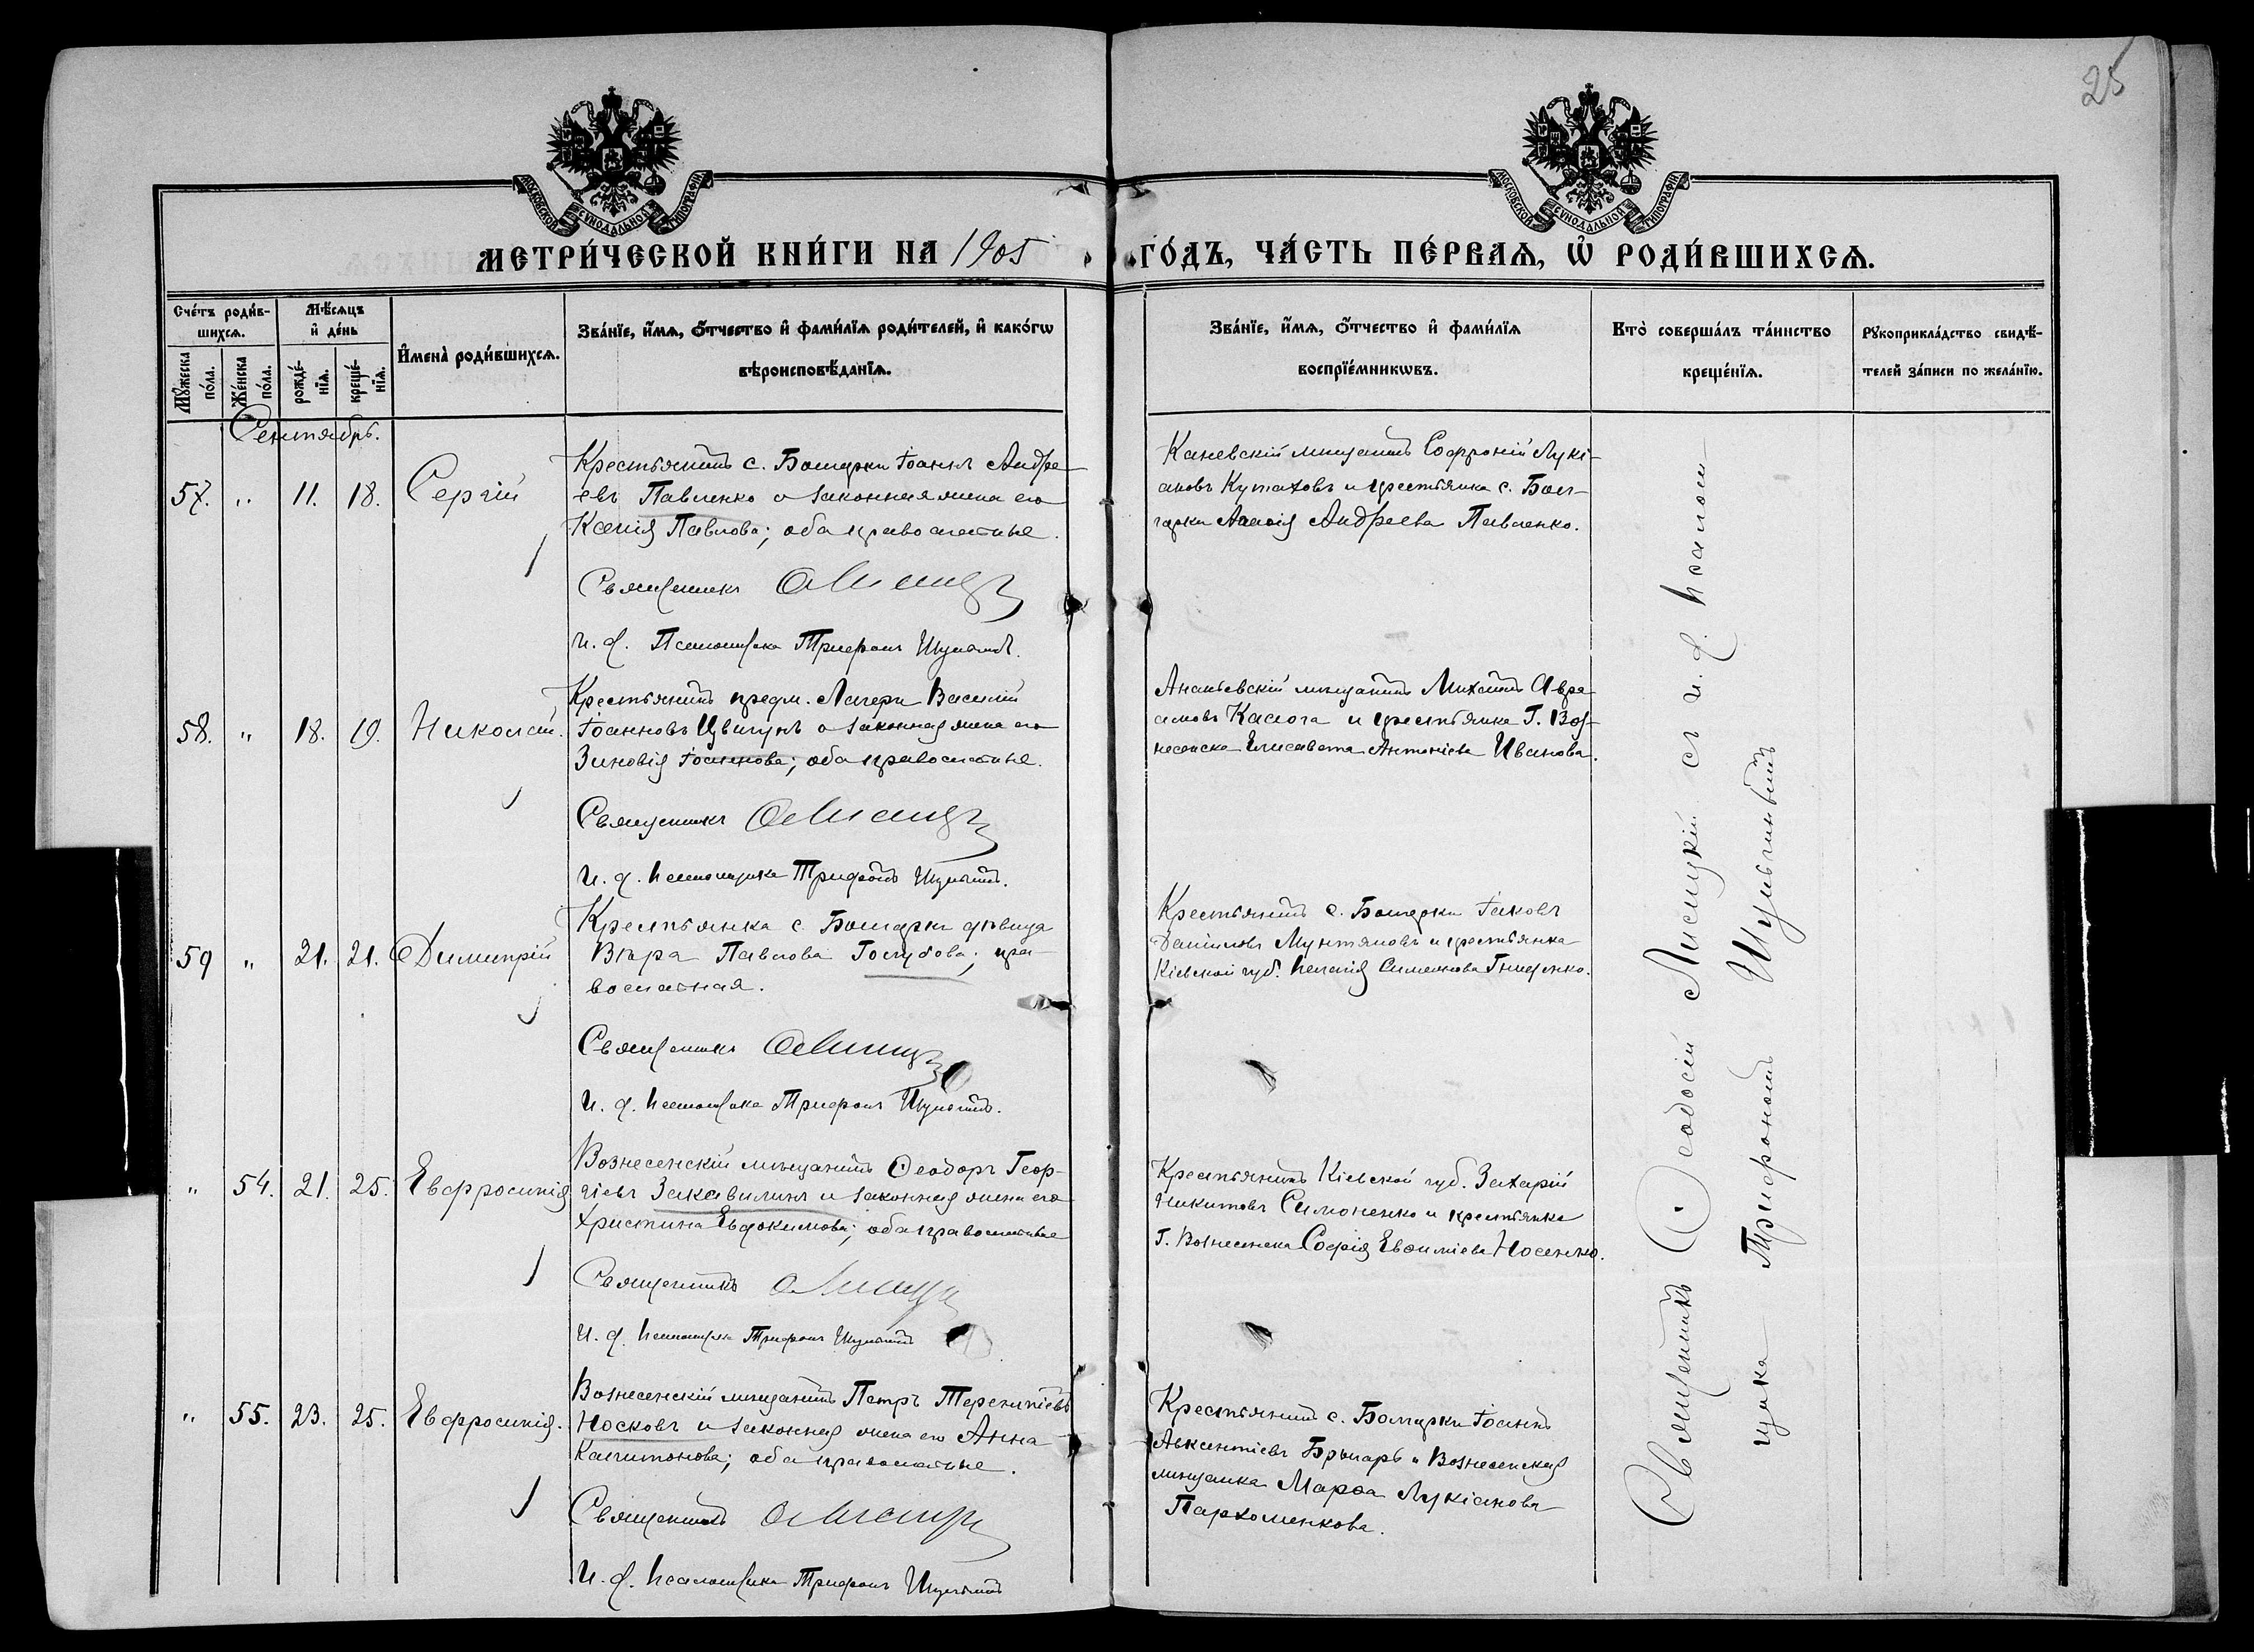 25
МОСКОВСКОЙ СѴНОДАЛЬНОЙ ТИПОГРАФІИ
МОСКОВСКОЙ СѴНОДАЛЬНОЙ ТИПОГРАФІИ
МЕТРИ́ЧЕСКОЙ КНИ́ГИ НА 1905 ГО́ДЪ, ЧА́СТЬ ПЕ́РВАѦ, Ѡ҆ РОДИ́ВШИХСѦ.
Сче́тъ роди́в-
шихсѧ.
Мꙋ́жеска по́ла.
Же́нска по́ла.
Мѣ́сѧцъ
и҆ де́нь
рожде́-
нїѧ.
креще́-
нїѧ.
И҆мена̀ роди́вшихсѧ.
Зва́нїе, и҆́мѧ, о҆́тчество и҆ фами́лїѧ роди́телей, и҆ како́гѡ
вѣроисповѣ́данїѧ.
Зва́нїе, и҆́мѧ, о҆́тчество и҆ фами́лїѧ
воспрїе́мникѡвъ.
Кто̀ соверша́лъ та́инство
креще́нїѧ.
Рꙋкоприкла́дство свидѣ́-
телей за́писи по жела́нїю.
Сентябрь.
57. " 11. 18. Сергій
Крестьянинъ с. Болгарки Іоаннъ Андре-
евъ Павленко и законная жена его
Ксенія Павлова; оба православные.
Священникъ
И. д. Псаломщика Трифонъ
Каневскій мѣщанинъ Софроній Лукі-
ановъ Кутаховъ и крестьянка с. Бол-
гарки Андреева Павленко.
58. " 18. 19. Николай.
Крестьянинъ предм. Лагери Василій
Іоанновъ Цвигунъ и законная жена его
Зиновія Іоаннова; оба православные.
Священникъ
И. д. псаломщика Трифонъ
Ананьевскій мѣщанинъ Михаилъ Авра-
амовъ Калюга и крестьянка Г. Воз-
несенска Елисавета Антоніева Иванова.
59 " 21. 21. Димитрій
Крестьянка с. Болгарки дѣвица
Вѣра Павлова Голубова; пра-
вославная.
Священникъ
И. д. псаломщика Трифонъ
Крестьянинъ с. Болгарки Іаковъ
Даніиловъ Мунтяновъ и крестьянка
Кіевской губ. Пелагія Симеонова Гнищенко.
" 54. 21. 25. Евфросинія
Вознесенскій мѣщанинъ Ѳеодоръ Геор-
гіевъ Закавилинъ и законная жена его
Христина Евдокимова; оба православные
Священникъ
И. д. псаломщика Трифонъ
Крестьянинъ Кіевской губ. Захарій
Никитовъ Симоненко и крестьянка
Г. Вознесенска Софія Евѳиміева Носенко.
" 55. 23. 25. Евфросинія.
Вознесенскій мѣщанинъ Петръ Терентіевъ
Носковъ и законная жена его Анна
Капитонова; оба православные.
Священникъ
И. д. псаломщика Трифонъ
Крестьянинъ с. Болгарки Іоаннъ
Авксентіевъ Брынарь и Вознесенская
мѣщанка Марѳа Лукіанова
Пархоменкова.
Священникъ Ѳеодосій Лисицкій съ и. д. псалом-
щика Трифономъ